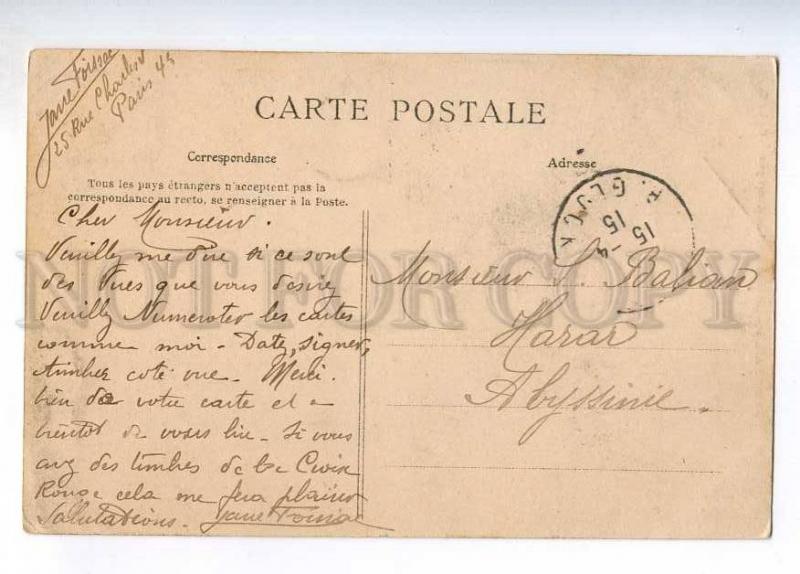 Jane Foissac
25 Rue Charles V
Paris 4e
CARTE POSTALE
Correspondance
Adresse
Tous les pays étrangers n'acceptent pas la
correspondance au recto, se renseigner à la Poste.
Cher Monsieur.
Veuillez me dire si ce sont
des Vues que vous desirez
Veuillez Numeroter les cartes
comme moi - Datez, signer,
timbrez coté vue - Merci
bien de votre carte et a
bientot de vous lire - Si vous
avez des timbres de la Croix
Rouge cela me fera plaisir
Salutations. Jane Foissac
15
15 -4
Monsieur S. Balian
Harar
Abyssinie.
NOT FOR COPY